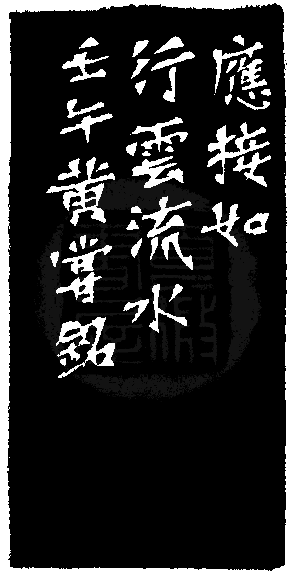 應接如
行雲流水
壬午黄嘗銘